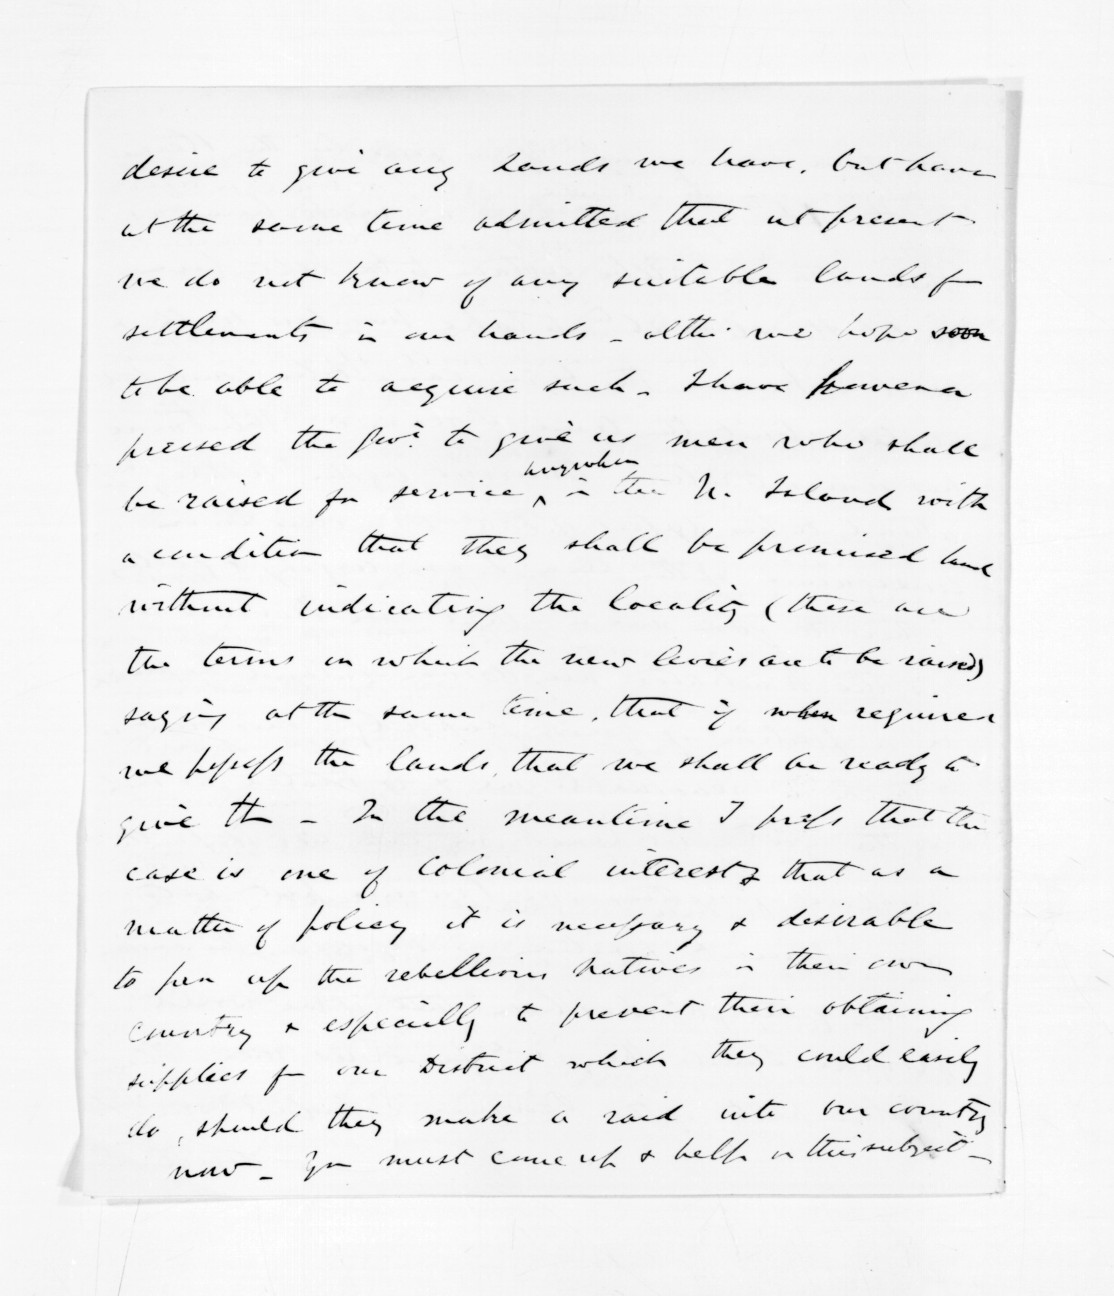 desire to give any lands we have, but have
at the same time admitted that at present
we do not know of any suitable lands for
settlements in our hands - altho' we hope soon
to be able to acquire such - I have however
pressed the Govt. to give us men who shall
be raised for service anywhere in the N. Island with
a condition that they shall be promised land
without indicating the locality (these are
the terms on which the new levies are to be raised)
saying at the same time, that if when required
we possess the lands, that we shall be ready to
give th - In the meantime I press that the
case is one of Colonial interest & that as a
matter of policy it is necessary & desirable
to pen up the rebellious Natives in their own
country & especially to prevent their obtaining
supplies fm our District which they could easily
do, should they make a raid into our country
now - You must come up & help on this subject -